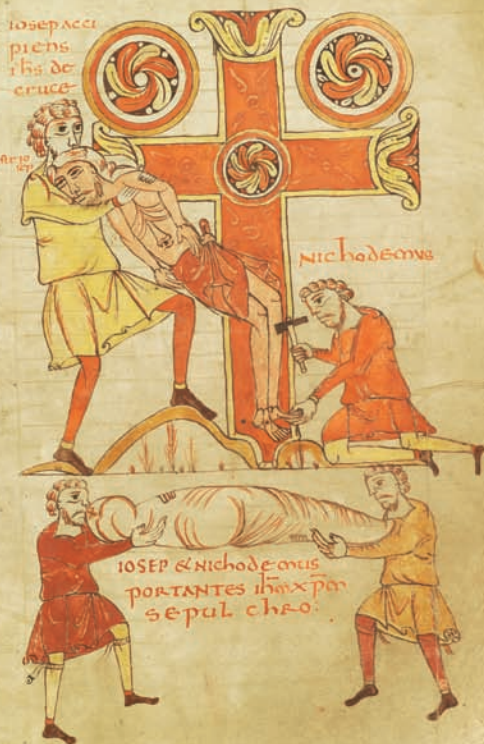 IOSEP ACCI
PIENS
IHS DE
CRUCE
NICHODEMUS
IOSEP & NICHODEMUS
PORTANTES IHM XPM
SEPULCHRO: